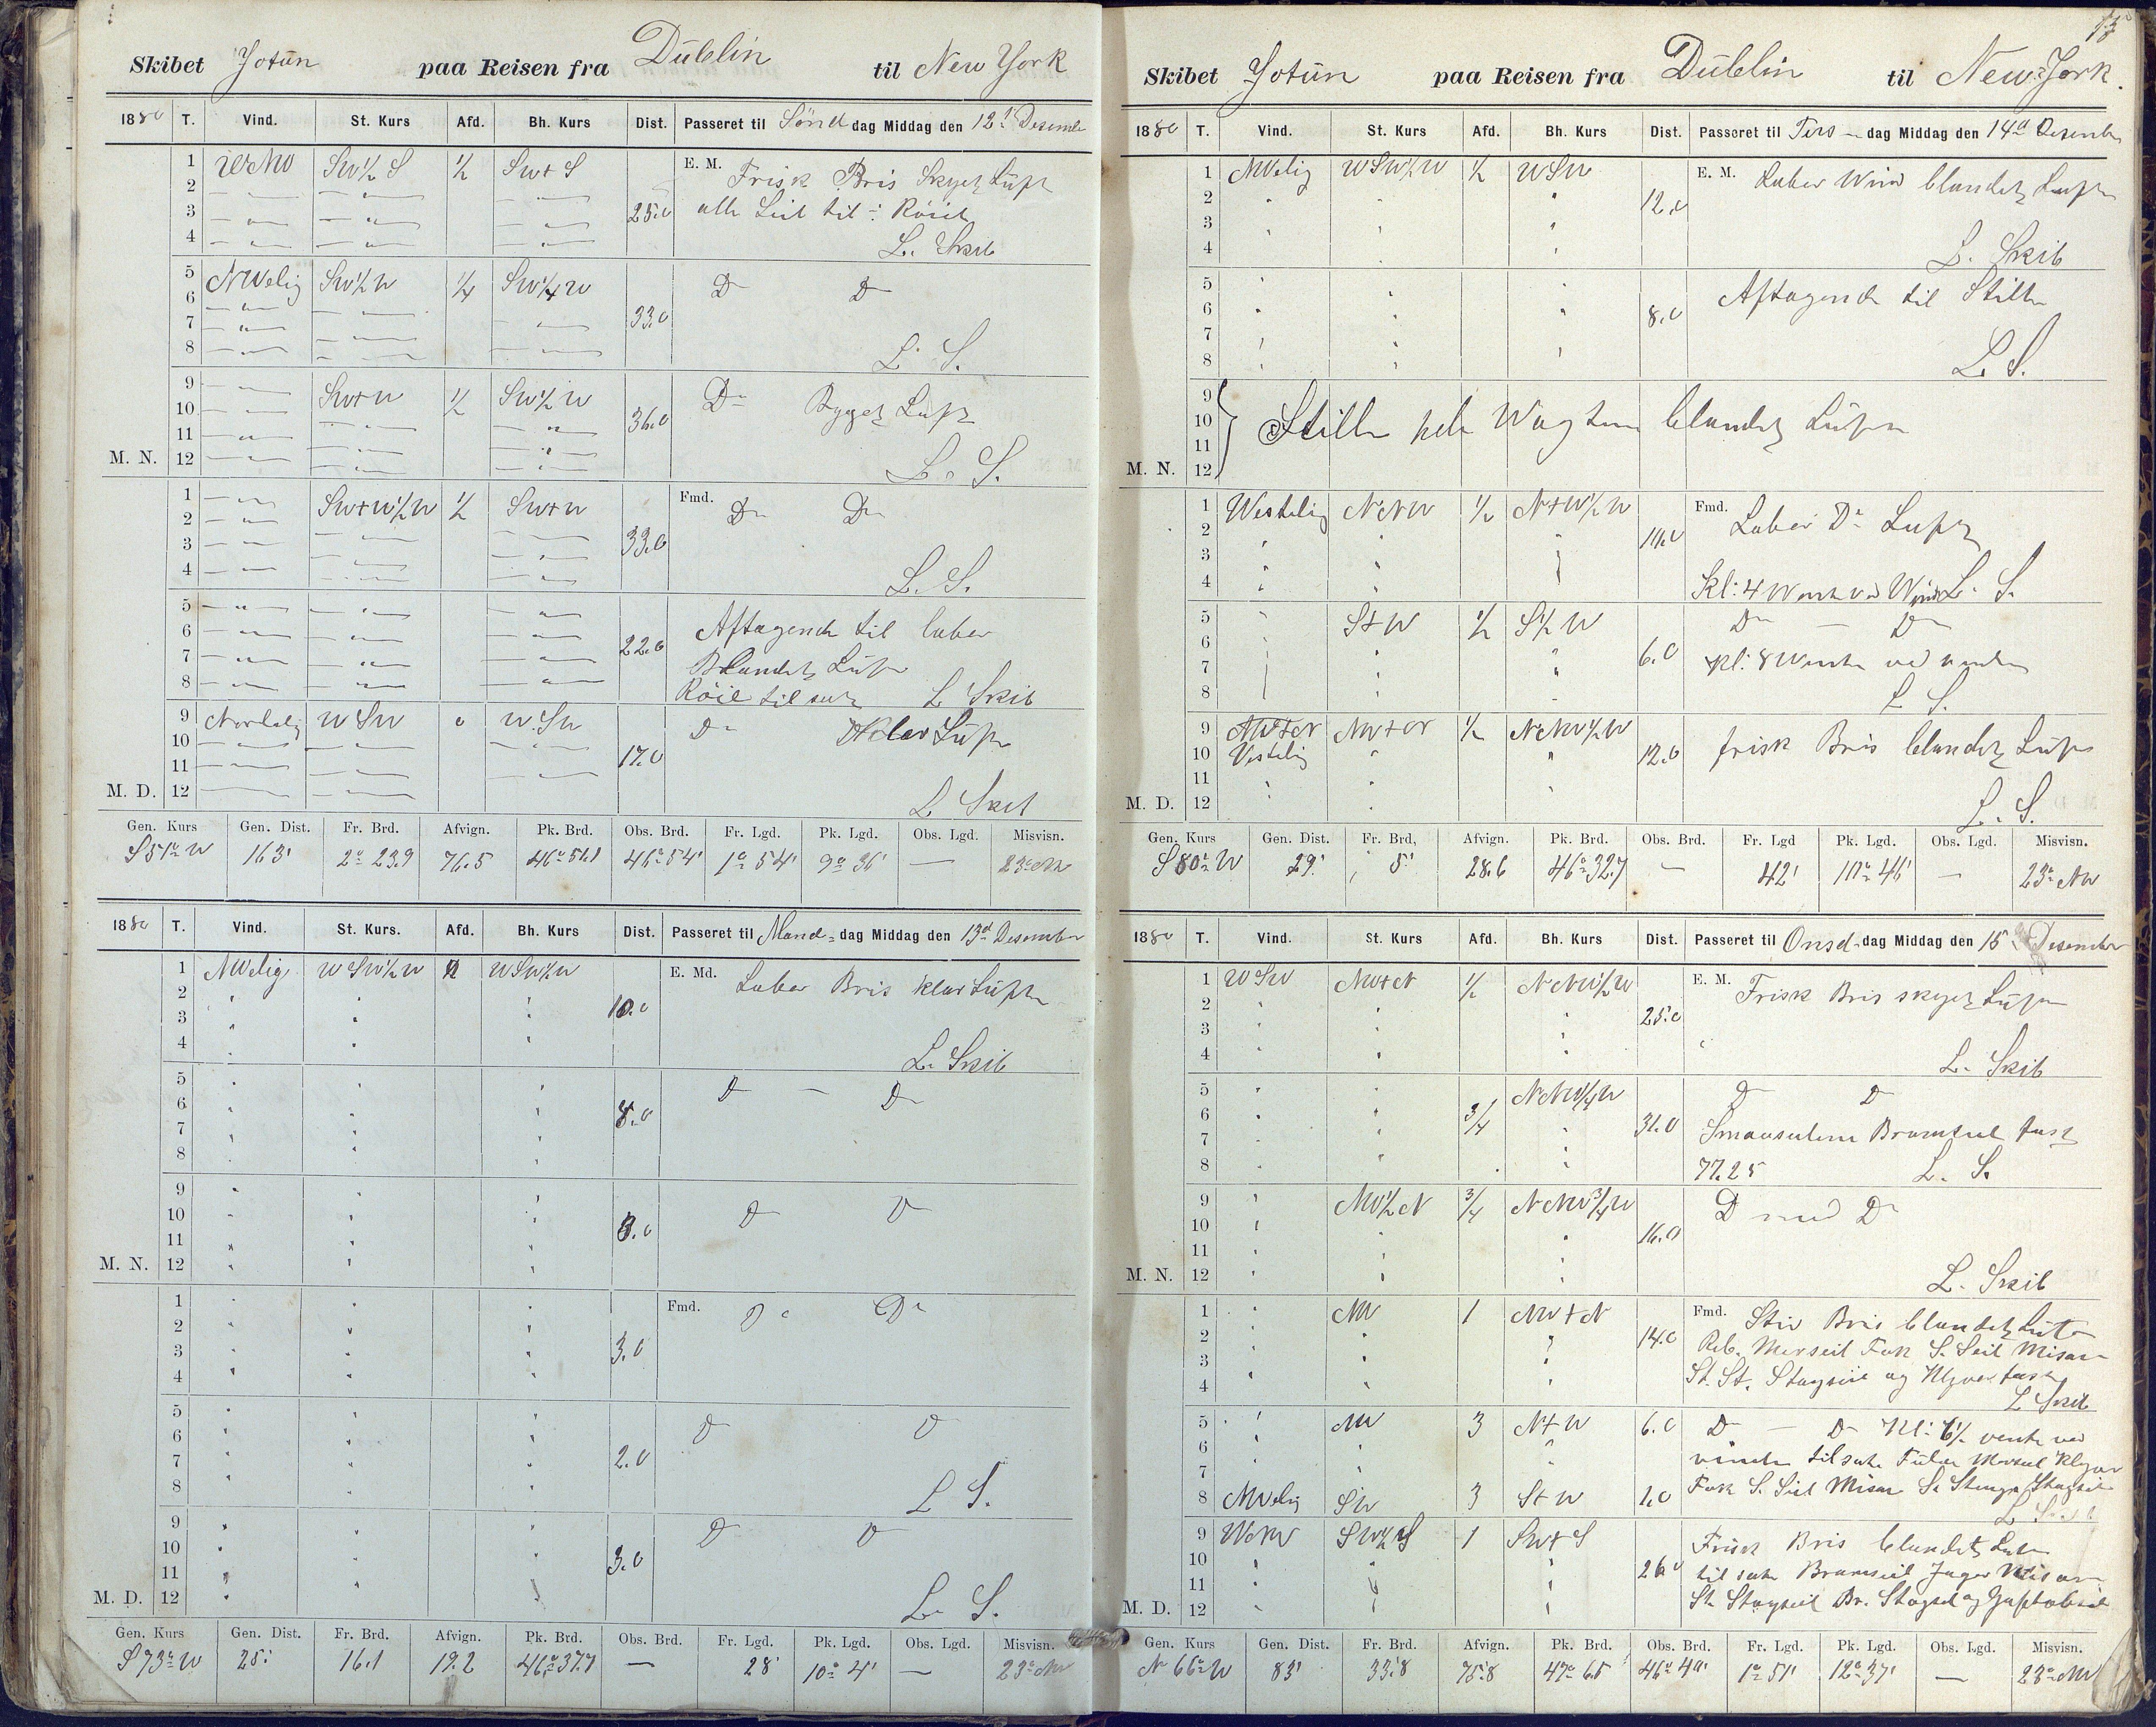 Skibet Jotun paa Reisen fra Dublin til New York
1880 T. Vind. St. Kurs Afd. Bh. Kurs Dist. Passeret til Sønd dag Middag den 12t Desember
1 WNW SW½S ½ SW+S E. M. Frisk Bris Skyet Luft
2
3 25.0 alle Seil til ÷ Röiel
4 L. Skib
5 NWelig SW½W ¼ SW¼W D D
6
7 33.0
8 L. S.
9 SW+W ½ SW½W D Bygget Luft
10 36.0
11
M. N. 12 L. S.
1 SW+W½W ½ SW+W Fmd. D D
2
3 33.0
4 L. S.
5
6 22.0 Aftagende til laber
7 Blandet Luft
8 Röiel tilsat L Skib
9 Nordelig WSW 0 WSW D klar Luft
10
11 17.0
M. D. 12 L Skib
Gen. Kurs Gen. Dist. Fr. Brd. Afvign. Pk. Brd. Obs. Brd. Fr. Lgd. Pk. Lgd. Obs. Lgd. Misvisn.
S 51° W 163' 2° 23.9 76.5 46° 56.1 46° 54' 1° 54' 9° 36' — 23° NW
1880 T. Vind. St. Kurs. Afd. Bh. Kurs Dist. Passeret til Mand- dag Middag den 13d Desember
1 NWelig WSW½W WSW½W E. Md. Laber Bris klar Luft
2
3 10.0
4 L. Skib
5 D — D
6
7 8.0
8
9
10 D D
11 3.0
M. N. 12
1 Fmd. D D
2
3 3.0
4
5
6 D D
7 2.0
8 L S.
9 D D
10
11 3.0
M. D. 12 L. S.
Gen. Kurs Gen. Dist. Fr. Brd. Afvign. Pk. Brd. Obs. Brd. Fr. Lgd. Pk. Lgd. Obs. Lgd. Misvisn.
S 73° W 25' 16.1 19.2 46° 37.7 — 28 10° 4' — 23° NW
13
Skibet Jotun paa Reisen fra Dublin til New York.
1880 T. Vind. St. Kurs Afd. Bh. Kurs Dist. Passeret til Tirs- dag Middag den 14d Desember
1 NWelig WSW½W ½ WSW E. M. Laber Wind blandet Luft
2 12.0
3
4 L. Skib
5 Aftagende til Stille
6 8.0
7
8 L. S.
9
10 Stille hele Wagten blandet Luft
11
M. N. 12
1 Westelig NNW ½ N+W½W Fmd. Laber D Luft
2 10.0
3
4 Kl: 4 Wente ved Winden L. S.
5 S+W ½ S½W D — D
6 6.0
7 Kl: 8 Wente ved vinden
8 L S.
9 NW+N ½ NNW½W frisk Bris blandet Luft
10 Vestelig 12.0
11
M. D. 12 L. S.
Gen. Kurs Gen. Dist. Fr. Brd. Afvign. Pk. Brd. Obs. Brd. Fr. Lgd Pk. Lgd. Obs. Lgd. Misvisn.
S 80° W 29' 5' 28.6 46° 32.7 — 42' 10° 46' — 23° NW
1880 T. Vind. St. Kurs Afd. Bh. Kurs Dist. Passeret til Onsd- dag Middag den 15 Desember
1 WSW NW+N ½ NNW½W E. M. Frisk Bris skyet Luft
2 25.0
3
4 L. Skib
5 NNW¼W D D
6 ¾ 31.0 Smaaseilene Bramseil fast
7
8 7725 L. S.
9 NW½N ¾ NNW¾W D med D
10 16.0
11
M. N. 12 L. Skib
1 NW 1 NW+N Fmd. Stiv Bris blandet Luft
2 14.0 Reb. Merseil Fok S. Seil Misan
3
4 St. St. Stagseil og Klyver fast
L Skib
5 NW 3 N+W 6.0 D — D Kl: 6½ vente ved
6
7 vinden tilsatte Fulde Merseil Klyver
8 NWelig SW 3 S+W 1.0 Fok S. Seil Misan St. Stenge Stagseil
9 WNW SW½S 1 SW+S Frisk Bris blandet Luft
10 26.0 tilsatte Bramseil Jager Misan
11
M. D. 12 St. Stagseil Br. Stagsel og Gaftopseil
Gen. Kurs Gen. Dist. Fr. Brd. Afvign. Pk. Brd. Obs. Brd. Fr. Lgd. Pk. Lgd. Obs. Lgd. Misvisn.
N 66° W 83' 33.8 75.8 47° 6.5 46° 40' 1° 51' 12° 37' — 23° NW